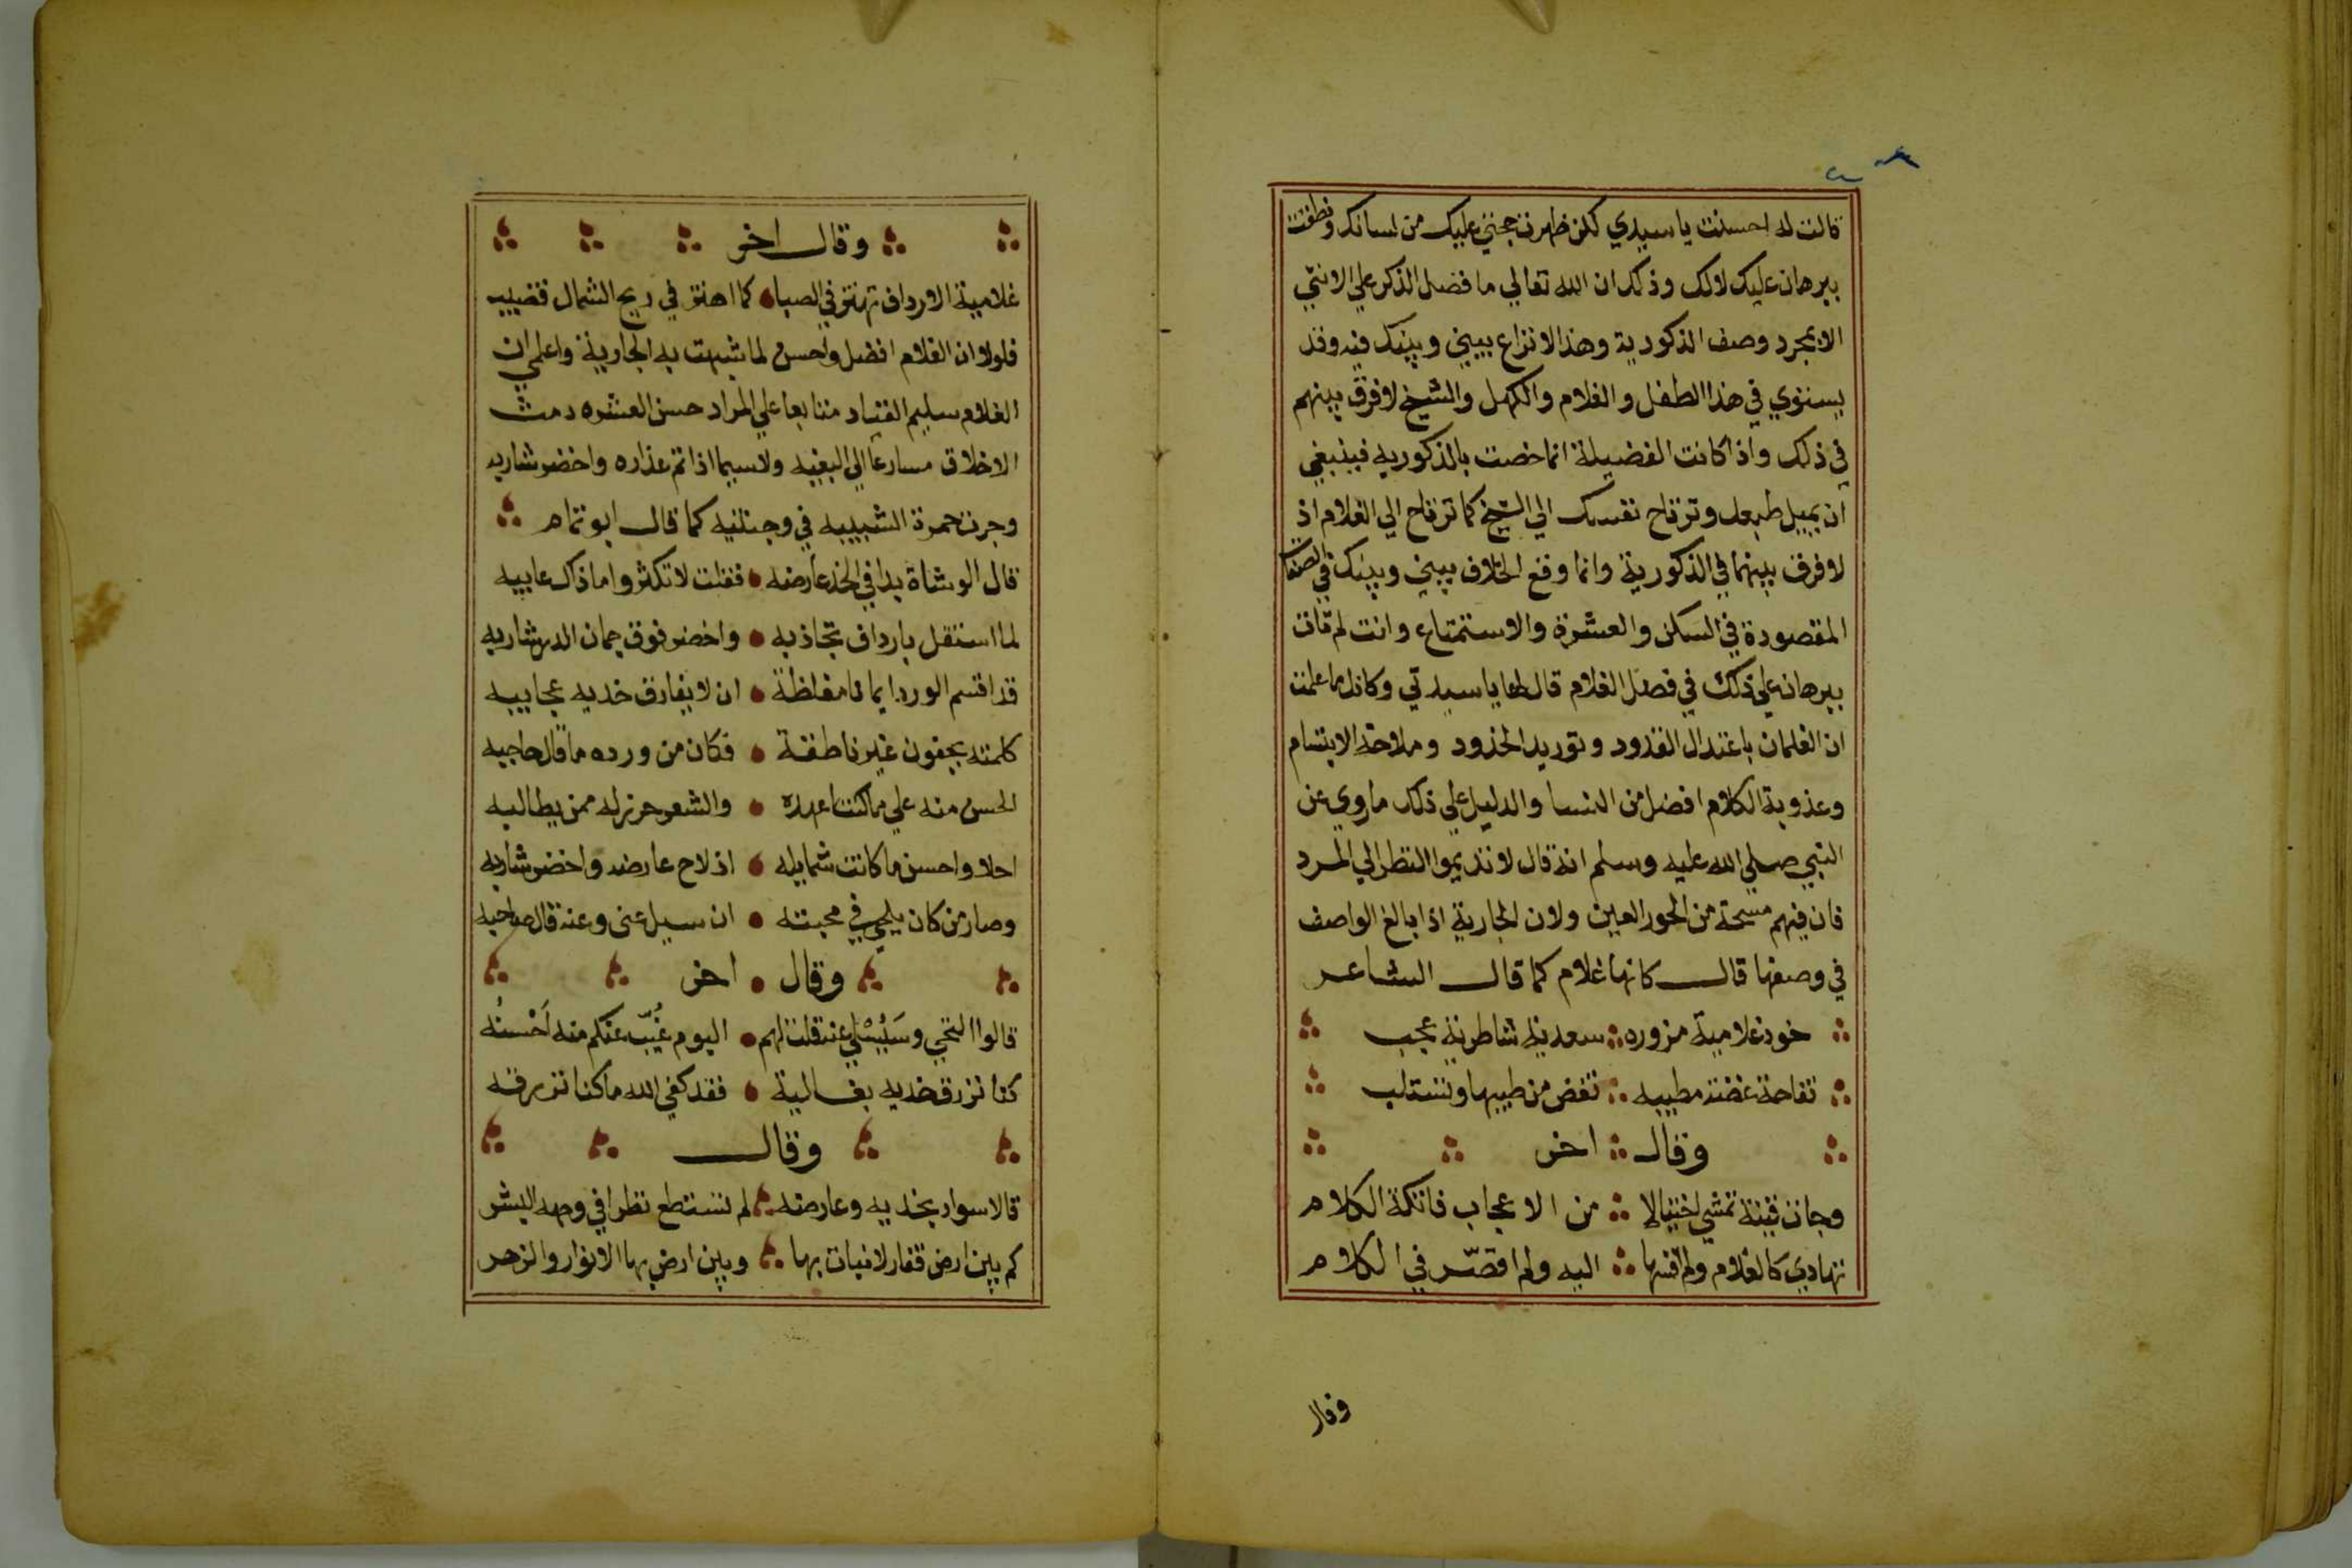 قالت له احسنت يا سيدي لكن ظهرت حجتي عليك من لسانك ونطقت
ببرهان عليك لالك وذلك ان الله تعالي ما فضل الذكر علي الانثي
الا بمجرد وصف الذكورية وهذا لانزاع بيني وبينك فيه وقد
يستوي في هذا الطفل والغلام والكهل والشيخ لا فرق بينهم
في ذلك واذا كانت الفضيلة انما خصت بالذكوريه فينبغي
ان يميل طبعك وترتاح نفسك الي الشيخ كما ترتاح الي الغلام اذ
لا فرق بينهما في الذكورية وانما وقع الخلاف بيني وبينك في الصفات
المقصودة في السكن والعشرة والاستمتاع وانت لم تات
ببرهان علي ذلك في فضل الغلام قال لها يا سيدتي وكانك ما علمت
ان الغلمان باعتدال القدود وتوريد الخدود وملاحة الابتسام
وعذوبة الكلام افضل من النسا والدليل علي ذلك ما روي عن
النبي صلي الله عليه وسلم انه قال لا تديموا النظر الي المرد
فان فيهم مسحة من الحور العين ولان الجارية اذا بالغ الواصف
في وصفها قال كانها غلام كما قال الشاعر
خود غلامية مزوره سعدية شاطرية عجب
تفاحة غضة مطيبه تغض من طيبها وتستلب
وقال اخر
وجات قينة تمشي اختيالا من الاعجاب فاتكة الكلام
تهادي كالغلام ولم اقسها اليه ولم اقصّر في الكلام
وقال
وقال اخر
غلامية الارداف تهتز في الصبا كما اهتز في ريح الشمال قضيب
فلولا ان الغلام افضل واحسن لما شبهت به الجارية واعلمي ان
الغلام سليم القياد متابعا علي المراد حسن العشره دمث
الاخلاق مسارعا الي البغيه ولا سيما اذا تم عذاره واخضر شاربه
وجرت حمرة الشبيبه في وجنتيه كما قال ابو تمام
قال الوشاة بدا في الخد عارضه فقلت لا تكثروا ما ذاك عايبه
لما استقل بارداف تجاذبه واخضر فوق جمان الدر شاربه
قد اقسم الورد ايمانا مغلظة ان لا يفارق خديه عجايبه
كلمته بجفون غير ناطقة فكان من ورده ما قال حاجبه
الحسن منه علي ما كنت اعهده والشعر حرز له ممن يطالبه
احلا واحسن ما كانت شمايله اذ لاح عارضه واخضر شاربه
وصار من كان يلحي في محبته ان سيل عني وعنه قال صاحبه
وقال اخر
قالوا التحي وسَيُسْلي عنه قلت لهم اليوم غُيّب عنكم منه اَحْسنُه
كنا نزرق خديه بغالية فقد كفي الله ما كنا نزرقه
وقال
قالا سواد بخديه وعارضه لم نستطع نظرا في وجهه البشر
كم بين ارض قفار لا نبات بها وبين ارض بها الانوار والزهر